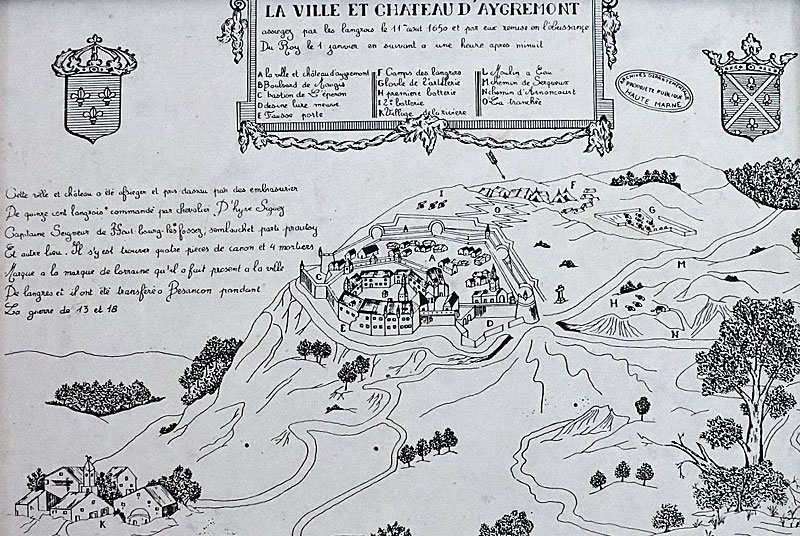 LA VILLE ET CHATEAU D'AYGREMONT
assiegez par les langrois le 11 aout 1650 et par eux remise en l'obeissance
Du Roy le 1 janvier en suivant a une heure apres minuit
A la ville et château d'aygremont
B Boulvard de Maugis
C bastion de L'éperon
D
E Fausse porte
F Camps des langrois
G de l'artillerie
H premiere batterie
I 2e batterie
K Village de la riviere
L Moulin a Eau
M chemin de Serqueux
N chemin d'Arnoncourt
O La tranchée
PROPRIÉTÉ PUBLIQUE
HAUTE MARNE
Cette ville et château a été assieger et pris dassau par des embrasurier
De quinze cent langrois commandé par chevalier D'hyre Siguey
Capitaine Seigneur de Haut bourg les fossez, somlouchet parti prautoy
Et autre lieu. Il s'y est trouver quatre pieces de canon et 4 mortiers
Marque a la marque de lorraine qu'il a fait present a la ville
De langres et il ont été transféré a Besancon pandant
La guerre de 13 et 18
I
F
O
G
A
A
C
M
H
E
D
N
K